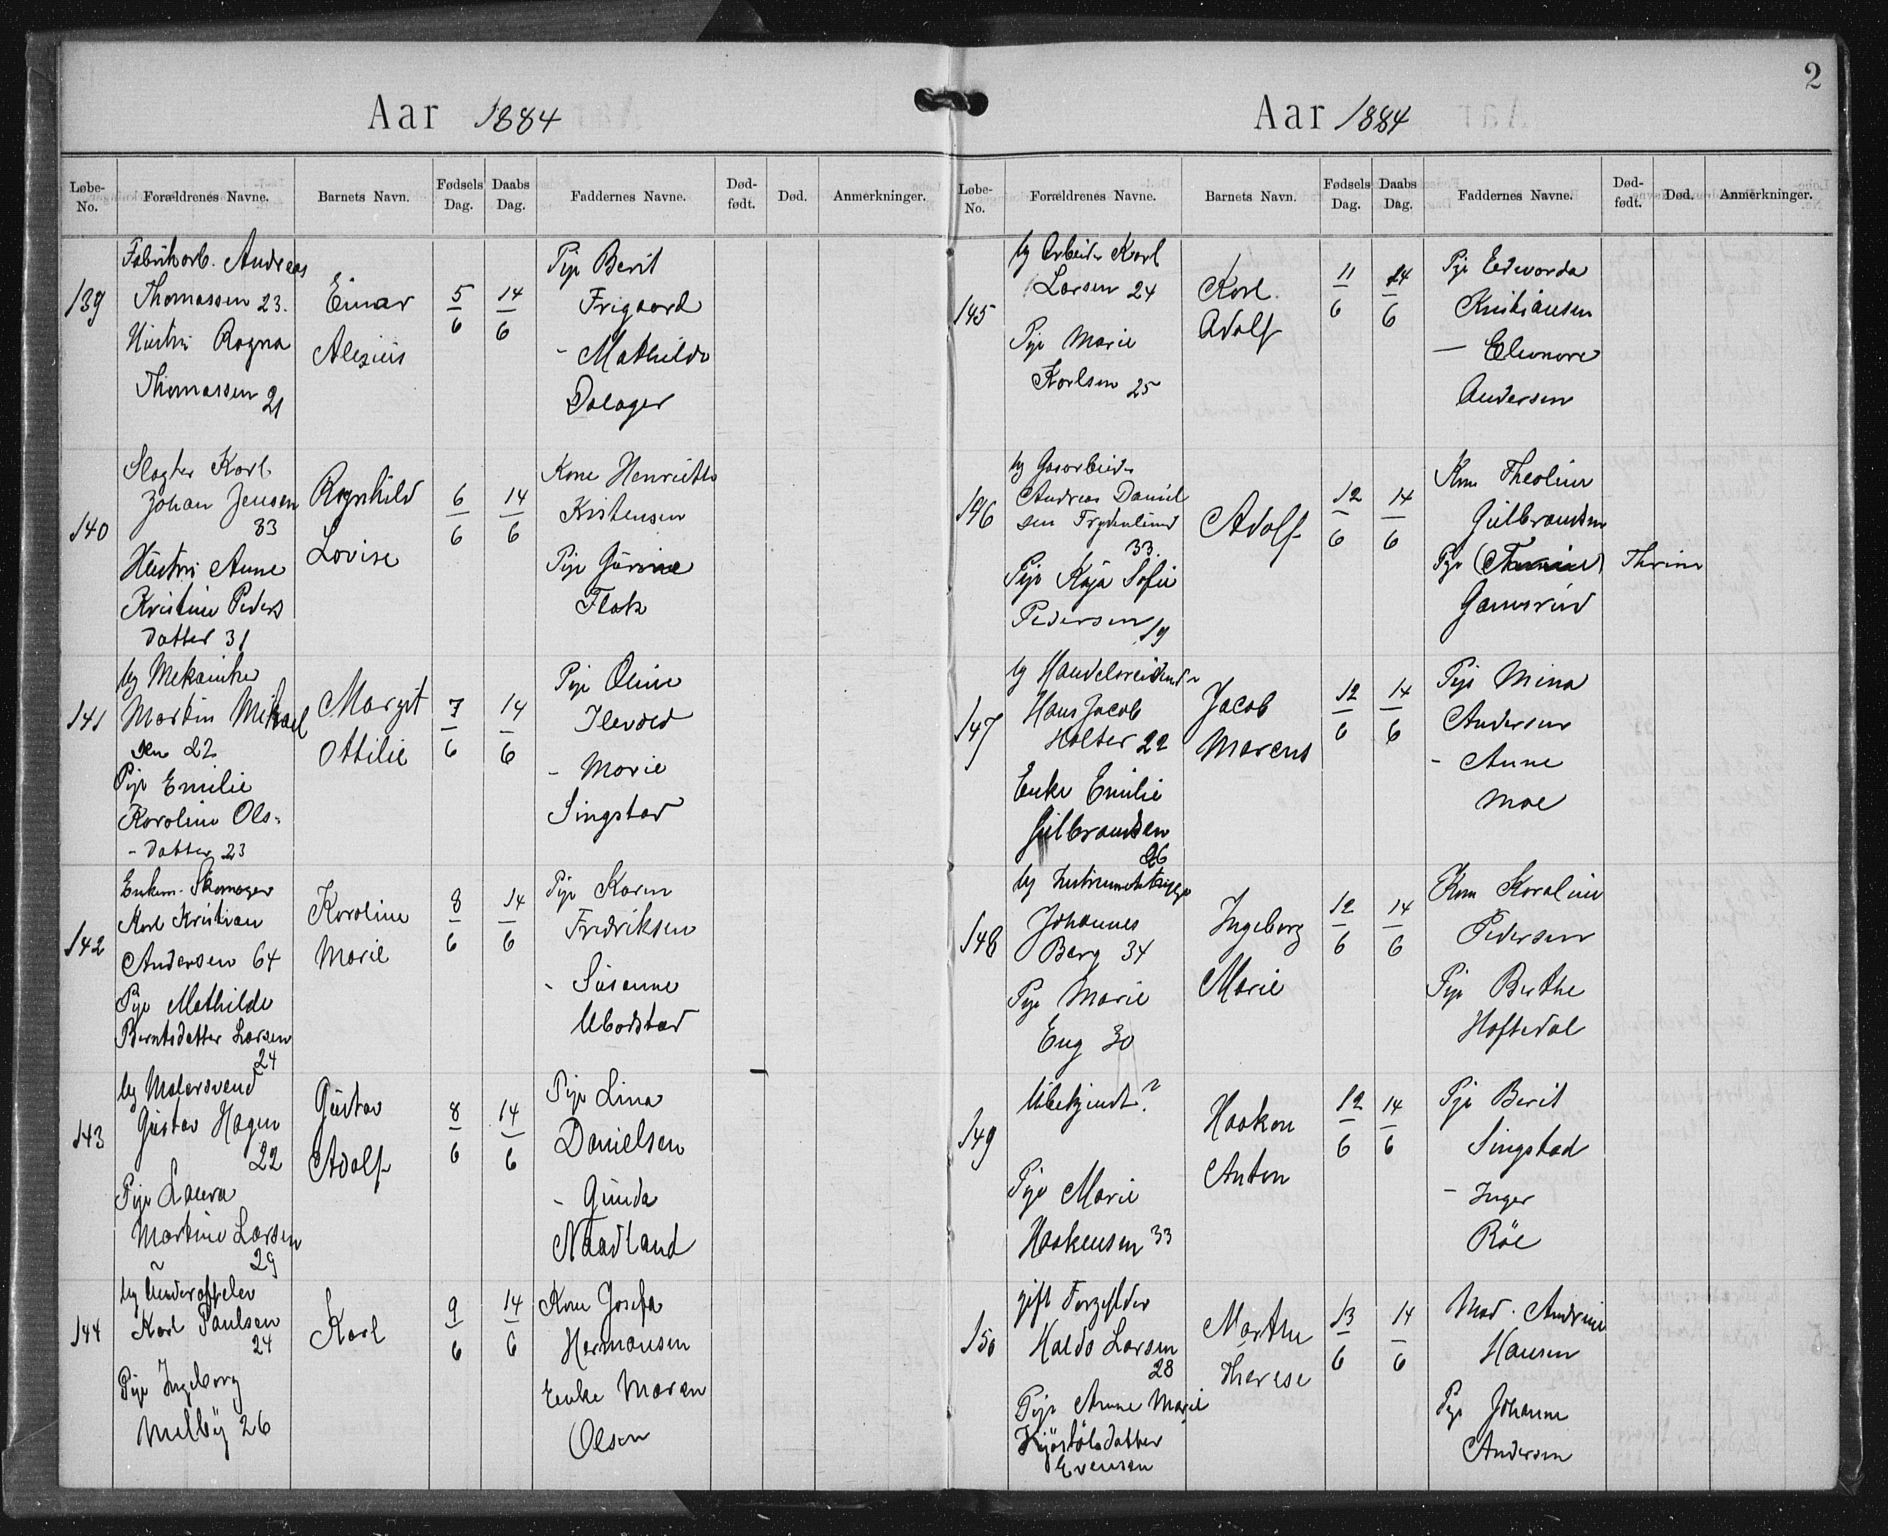 Aar 1884
Løbe-No. Forældrenes Navne. Barnets Navn. Fødsels Dag. Daabs Dag. Faddernes Navne. Død-født. Død. Anmerkninger.
139
Fabrikarb. Andreas
Thomassen 23.
Hustru Ragna
Thomassen 21
Einar
Alexius
5/6
14/6
Pige Berit
Frigaard
- Mathilde
Dalager
140
Slagter Karl
Johan Jensen
33
Hustru Anne
Kristine Peders
datter 31
Ragnhild
Lovise
6/6
14/6
Kone Henriette
Kristensen
Pige Gurine
Flak
141
Ug Mekaniker
Martin Mikael
sen 22
Pige Emilie
Karoline Ols-
- datter 23
Margit
Ottilie
7/6
14/6
Pige Oline
Ilevold
- Marie
Singstad
142
Enkem. Skomager
Karl Kristian
Andersen 64
Pige Mathilde
Berntsdatter Larsen
24
Karoline
Marie
8/6
14/6
Pige Karen
Fredriksen
- Susanne
Ubostad
143
Ug Malersvend
Gustav Hagen
22
Pige Laura
Martine Larsen
29
Gustav
Adolf
8/6
14/6
Pige Lina
Danielsen
- Gunda
Naadland
144
Ug Underoffelev
Karl Paulsen
24
Pige Ingeborg
Melby 26
Karl
9/6
14/6
Kone Josefa
Hermansen
Enke Maren
Olsen
2
Aar 1884
Løbe-No. Forældrenes Navne. Barnets Navn. Fødsels Dag. Daabs Dag. Faddernes Navne. Død-født. Død. Anmerkninger.
145
Ug Arbeider Karl
Larsen 24
Pige Marie
Karlsen 25
Karl
Adolf
11/6
14/6
Pige Edvarda
Kristiansen
— Eleonore
Andersen
146
Ug Gasarbeider
Andreas Daniel
sen Frydenlund
33.
Pige Kaja Sofie
Pedersen 19
Adolf
12/6
14/6
Kone Theoline
Gulbrandsen
Pige Thrine
Gamsrud
147
Ug Handelsreisende
Hans Jacob
Holter 22
Enke Emilie
Gulbrandsen
26
Jacob
Marcus
12/6
14/6
Pige Mina
Andersen
- Anne
Moe
148
Ug Instrumentbygger
Johannes
Berg 34
Pige Marie
Eng 30
Ingeborg
Marie
12/6
14/6
Kone Karoline
Pedersen
Pige Berthe
Haftedal
149
Ubekjendt?
Pige Marie
Haakensen 33
Haakon
Anton
12/6
14/6
Pige Berit
Singstad
- Inger
Röe
150
gift Forgylder
Haldo Larsen
28
Pige Anne Marie
Kjøstølsdatter
Evensen
Marthe
Therese
13/6
14/6
Mad. Andrine
Hansen
Pige Johanne
Andersen